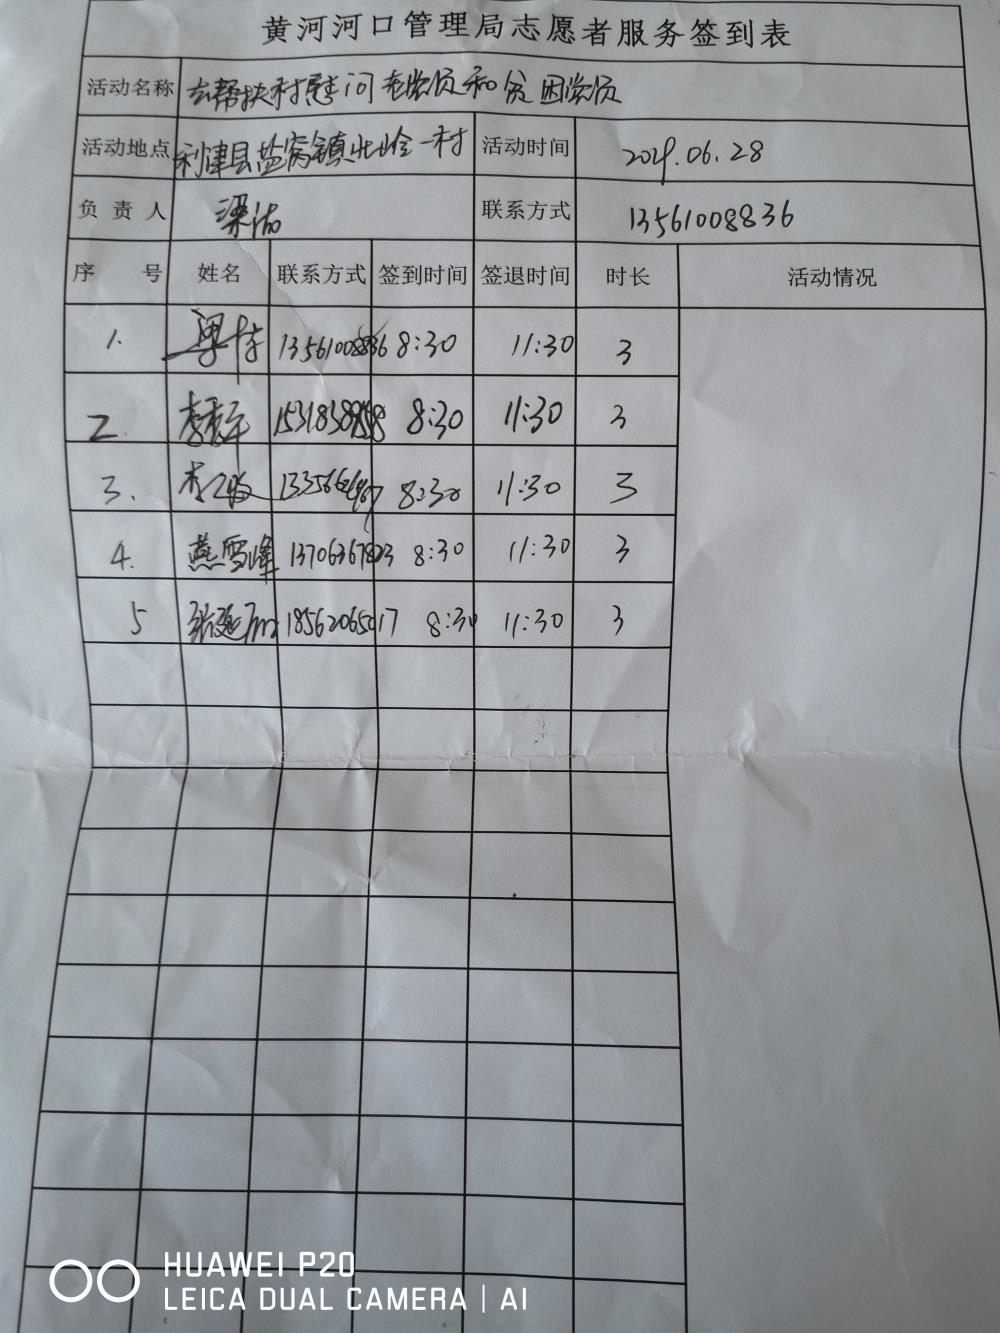 黄河河口管理局志愿者服务签到表
活动名称 去帮扶村慰问老党员和贫困党员
活动地点 利津县盐窝镇北岭一村 活动时间 2019.06.28
负责人 梁 联系方式 13561008836
序号 姓名 联系方式 签到时间 签退时间 时长 活动情况
1. 13561008836 8:30 11:30 3
2. 李 8:30 11:30 3
3. 李 8:30 11:30 3
4. 燕雪峰 13706367823 8:30 11:30 3
5 张延 18562065017 8:30 11:30 3
HUAWEI P20
LEICA DUAL CAMERA | AI